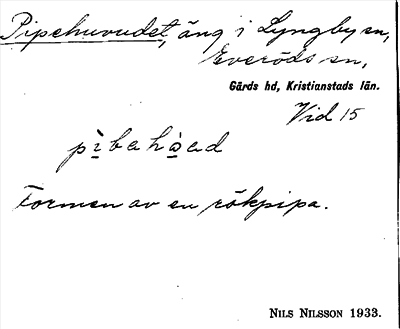 Pipehuvudet, äng i Lyngby sn,
Everöds sn,
Gärds hd, Kristianstads län.
Vid 15
pìbahàad
Formen av en rökpipa.
NILS NILSSON 1933.